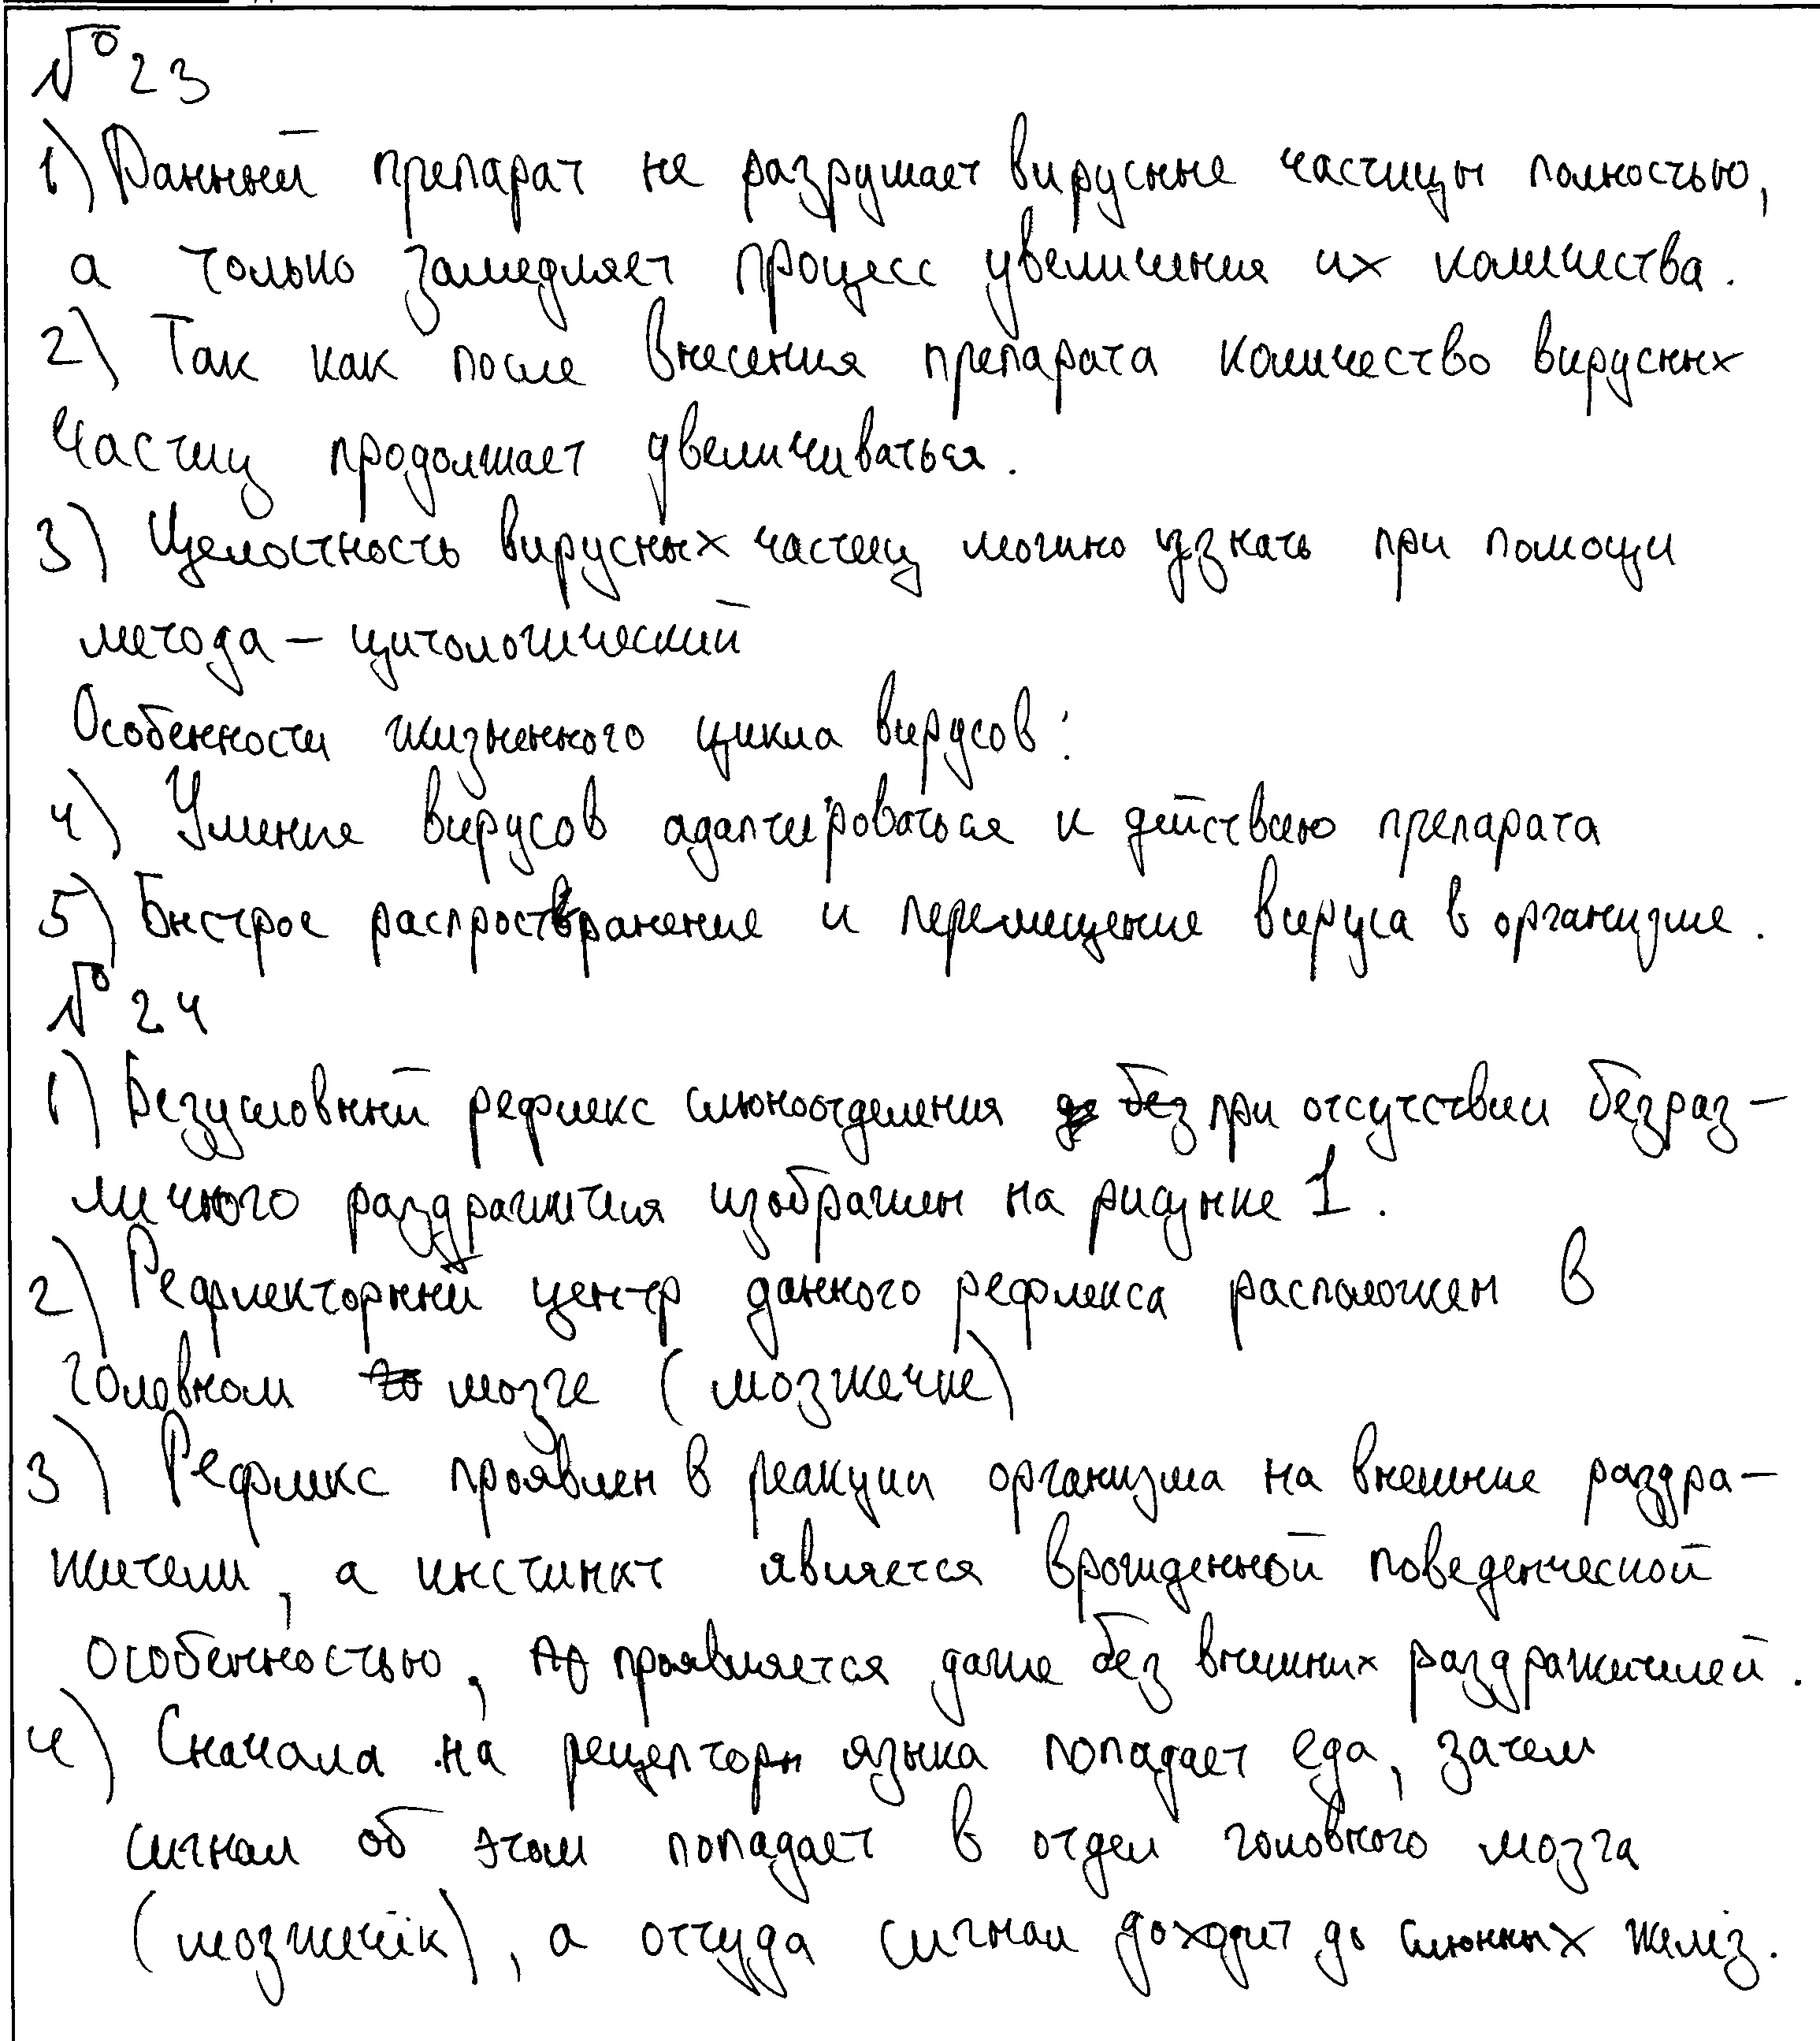 № 23
1) Данный препарат не разрушает вирусные частицы полностью,
а только замедляет процесс увеличения их количества.
2) Так как после внесения препарата количество вирусных
частиц продолжает увеличиваться.
3) Целостность вирусных частиц можно узнать при помощи
метода – цитологический
Особенности жизненного цикла вирусов:
4) Умение вирусов адаптироваться к действию препарата
5) Быстрое распространение и перемещение вируса в организме.
№ 24
1) Безусловный рефлекс слюноотделения при отсутствии безраз-
личного раздражителя изображен на рисунке 1.
2) Рефлекторный центр данного рефлекса расположен в
головном мозге (мозжечке)
3) Рефлекс проявлен в реакции организма на внешние раздра-
жители, а инстинкт является врожденной поведенческой
особенностью, проявляется даже без внешних раздражителей.
4) Сначала на рецепторы языка попадает еда, затем
сигнал об этом попадает в отдел головного мозга
(мозжечок), а оттуда сигнал доходит до слюнных желез.